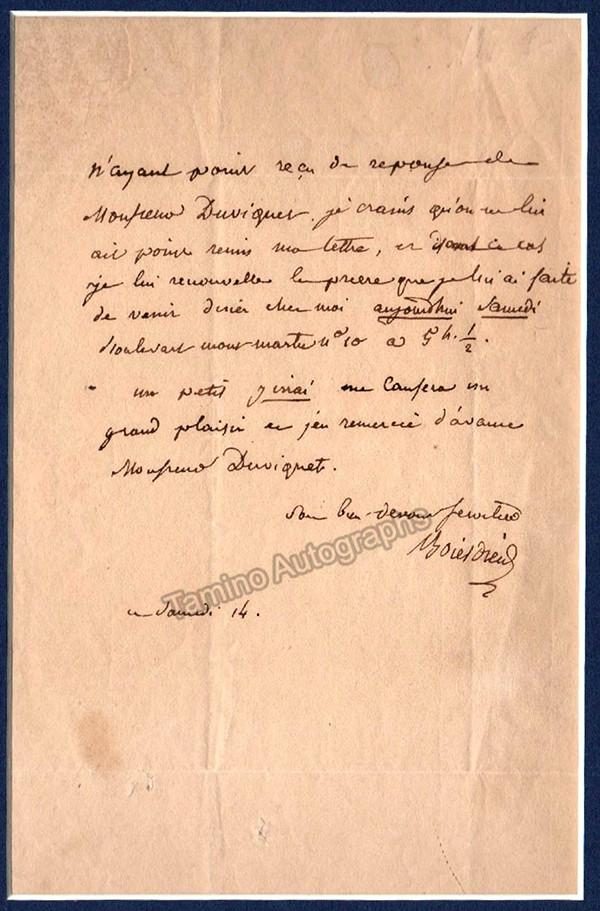 n'ayant point reçu de reponse de
Monsieur Duviquet, je crains qu'on ne lui
ait point remis ma lettre, et dans ce cas
je lui renouvelle la priere que je lui ai faite
de venir diner chez moi aujourdhui Samedi
boulevart mont-martre n° 10 a 5 h. 1/2.
un petit j'irai me causera un
grand plaisir et j'en remercie d'avance
Monsieur Duviquet.
Son bien devoué serviteur
Boieldieu
ce Samedi 14.
Tamino Autographs